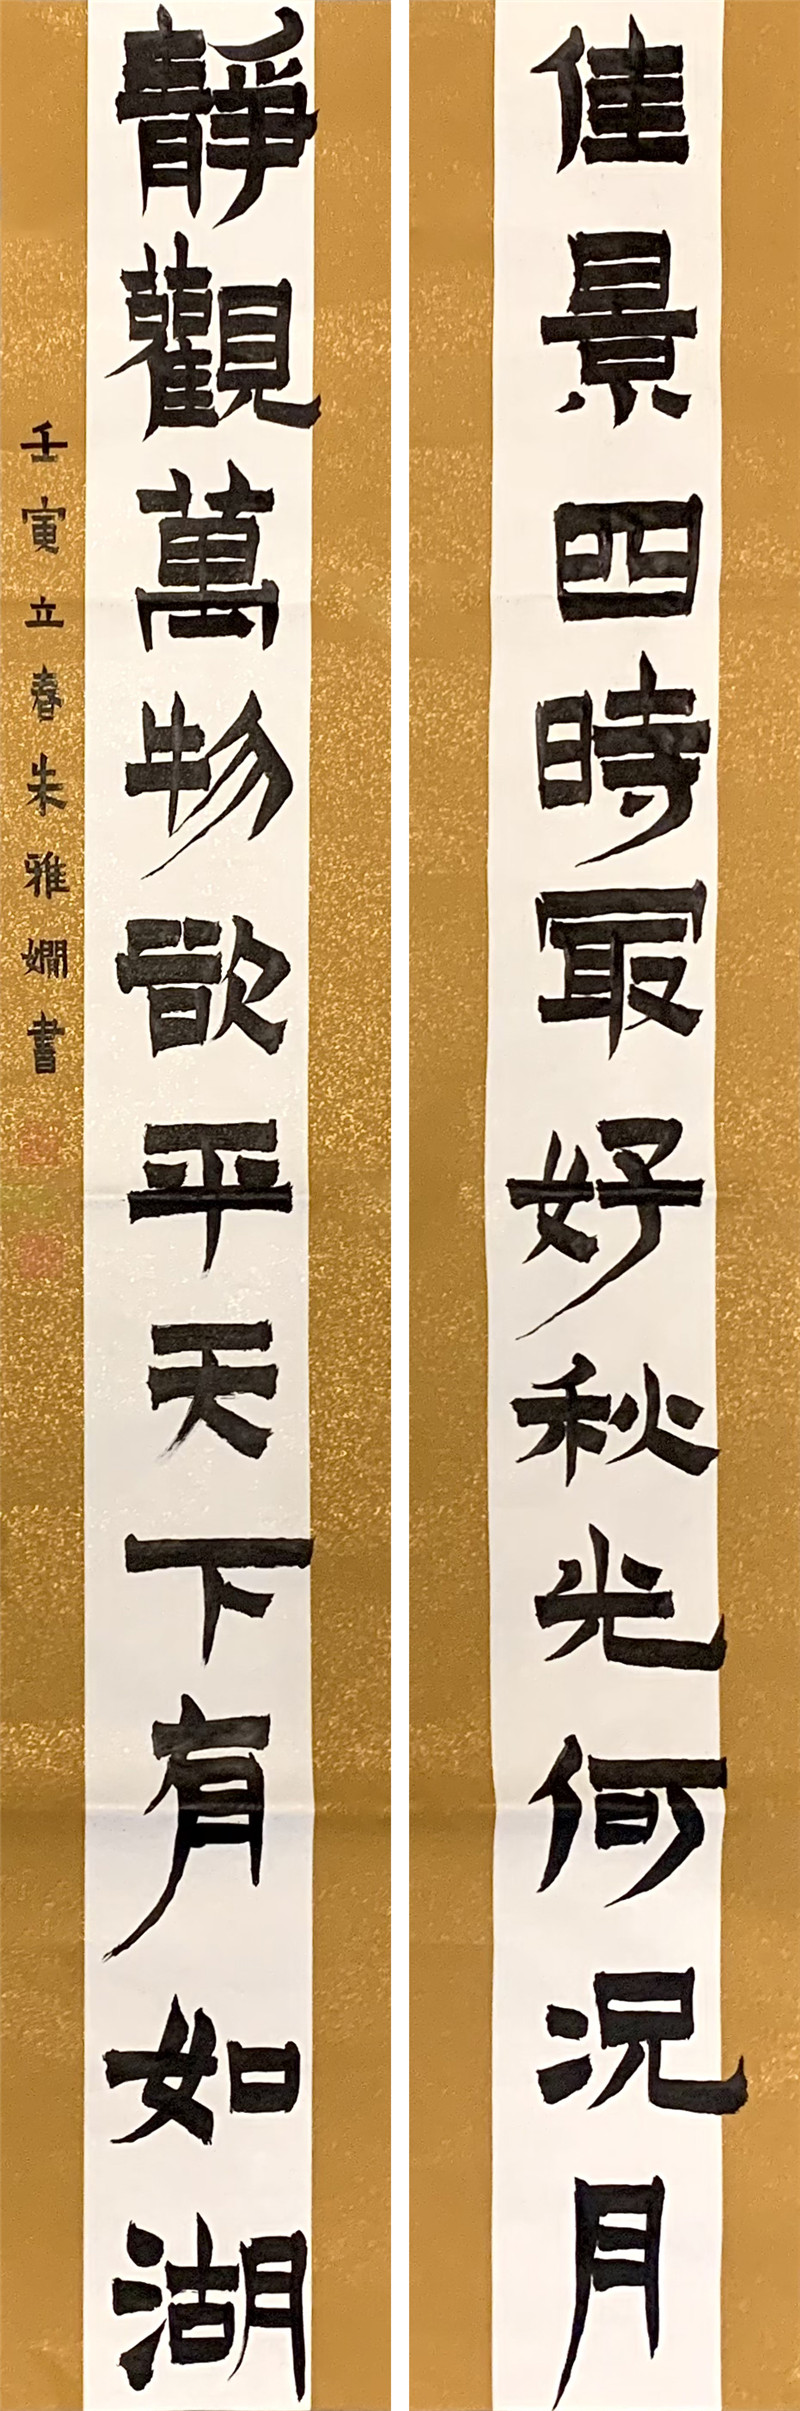 佳景四時㝡好秋光何況月
靜觀萬物欲平天下有如湖
壬寅立春朱雅嫻書